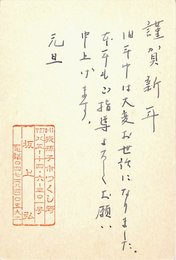 謹賀新年
旧年中は大変お世話になりました。
本年もご指導よろしくお願い
申上げます。
元旦
坂上弘